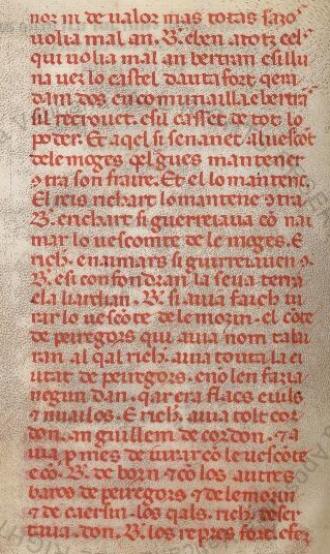 nor ni de ualor mas totas sazoˢ
uolia mal an. B̃. e ben atotz celˢ
qui uolia mal an bertran e silluna
ua uer lo castel dautafort qeran
dam dos en comunailla e bertrā
sil retrouet. e sil casset de tot lo
poder. Et aqel si senanet aluescōt
de lemoges qel gues mantener
ꝯtra son fraire. Et el lo mantenc.
El reis richart lo mantenc ꝯtra
B̃. e richart si guerreiaua cō nai
mar lo uescomte de lemoges. E
richͭ. e naimars si guirreiauen ⁊
B̃. e si confondian la seua terra
e la bardian. B̃. si auia faich iu
rar lo uescōte de lemozin. el cōte
de peiregors qui auia nom talai
ran al qal richͭ. auia touta la ci
utat de peiregors. e nō len fazia
negun dan. qar era flacs e uils
⁊ nuaillos. E richͭ. auia tolt cor
don. an guillem de cordon. ⁊ a
uia ꝓmes de iurar cō le uescōte
e cō. B̃. de born ⁊ cō los autres
baros de peiregors ⁊ de lemozin
⁊ de caersin. los qals. richͭ. deser
taua. don. B̃. los repres fort. e fez